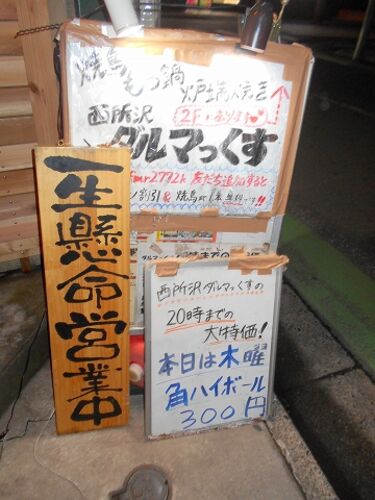 焼鳥もつ鍋
炉端
2F
西所沢
ダルマっくす
友だち追加すると
割引&焼鳥
一生懸命営業中
西所沢ダルマっくすの
20時までの
大特価!
本日は木曜
角ハイボール
300円